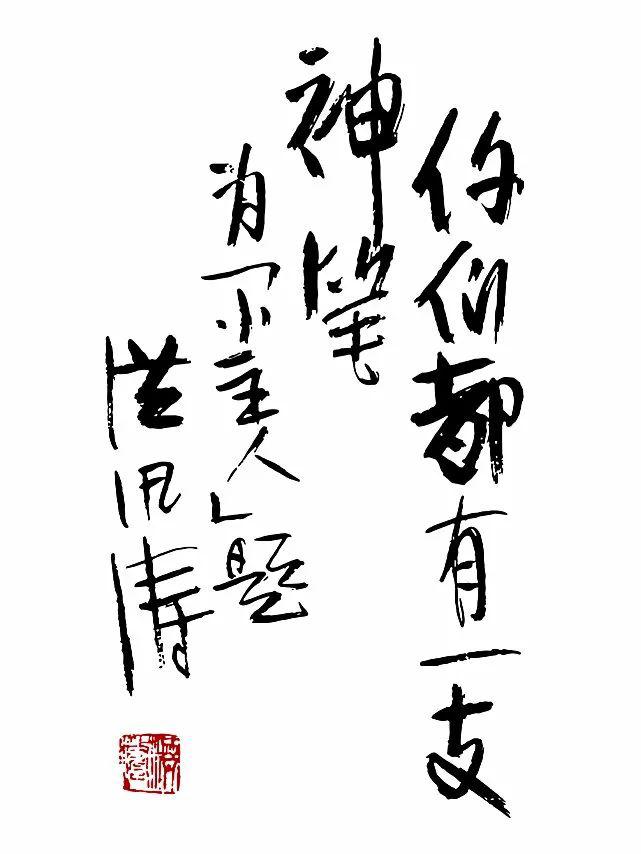 你们都有一支
神笔
为「小主人」题
洪汛涛